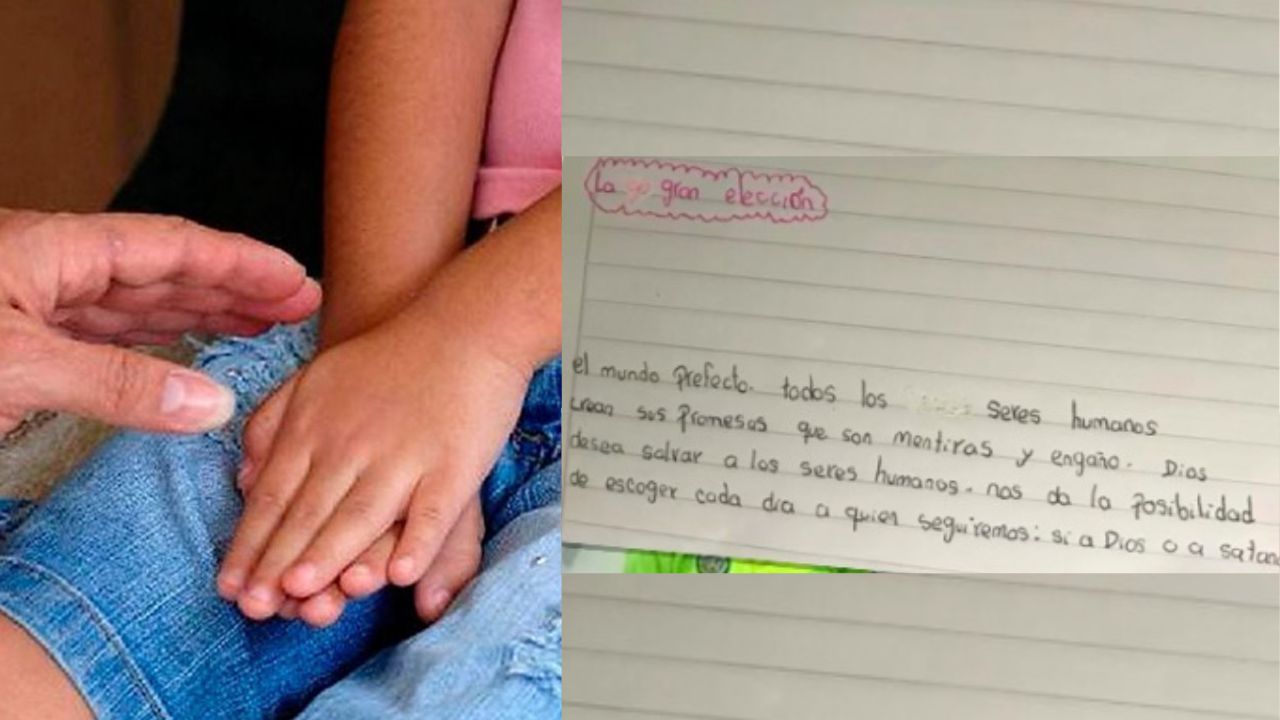 La gran elección
el mundo prefecto. todos los seres humanos
crean sus promesas que son mentiras y engaño. Dios
desea salvar a los seres humanos. nos da la posibilidad
de escoger cada día a quien seguiremos: si a Dios o a satan